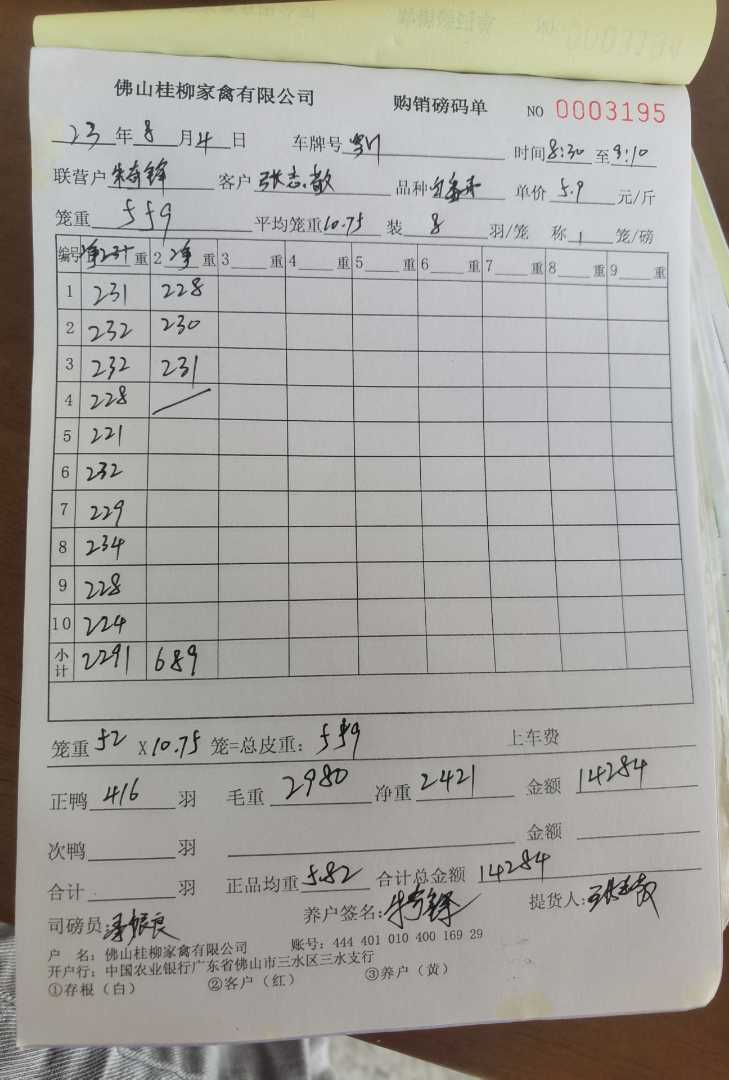 佛山桂柳家禽有限公司 购销磅码单 NO 0003195
23 年 8 月 4 日 车牌号 时间 8:30 至 9:10
联营户 客户 品种 单价 5.9 元/斤
笼重 559 平均笼重 10.75 装 8 羽/笼 称 1 笼/磅
编号 重 2 净 重 3 重 4 重 5 重 6 重 7 重 8 重 9 重
1 231 228
2 232 230
3 232 231
4 228
5 221
6 232
7 229
8 234
9 228
10 224
小计 2291 689
笼重 52 X 10.75 笼=总皮重: 559 上车费
正鸭 416 羽 毛重 2980 净重 2421 金额 14284
次鸭 羽 金额
合计 羽 正品均重 5.82 合计总金额 14284
司磅员: 养户签名: 提货人:
户 名: 佛山桂柳家禽有限公司 账号: 444 401 010 400 169 29
开户行: 中国农业银行广东省佛山市三水区三水支行
①存根（白） ②客户（红） ③养户（黄）